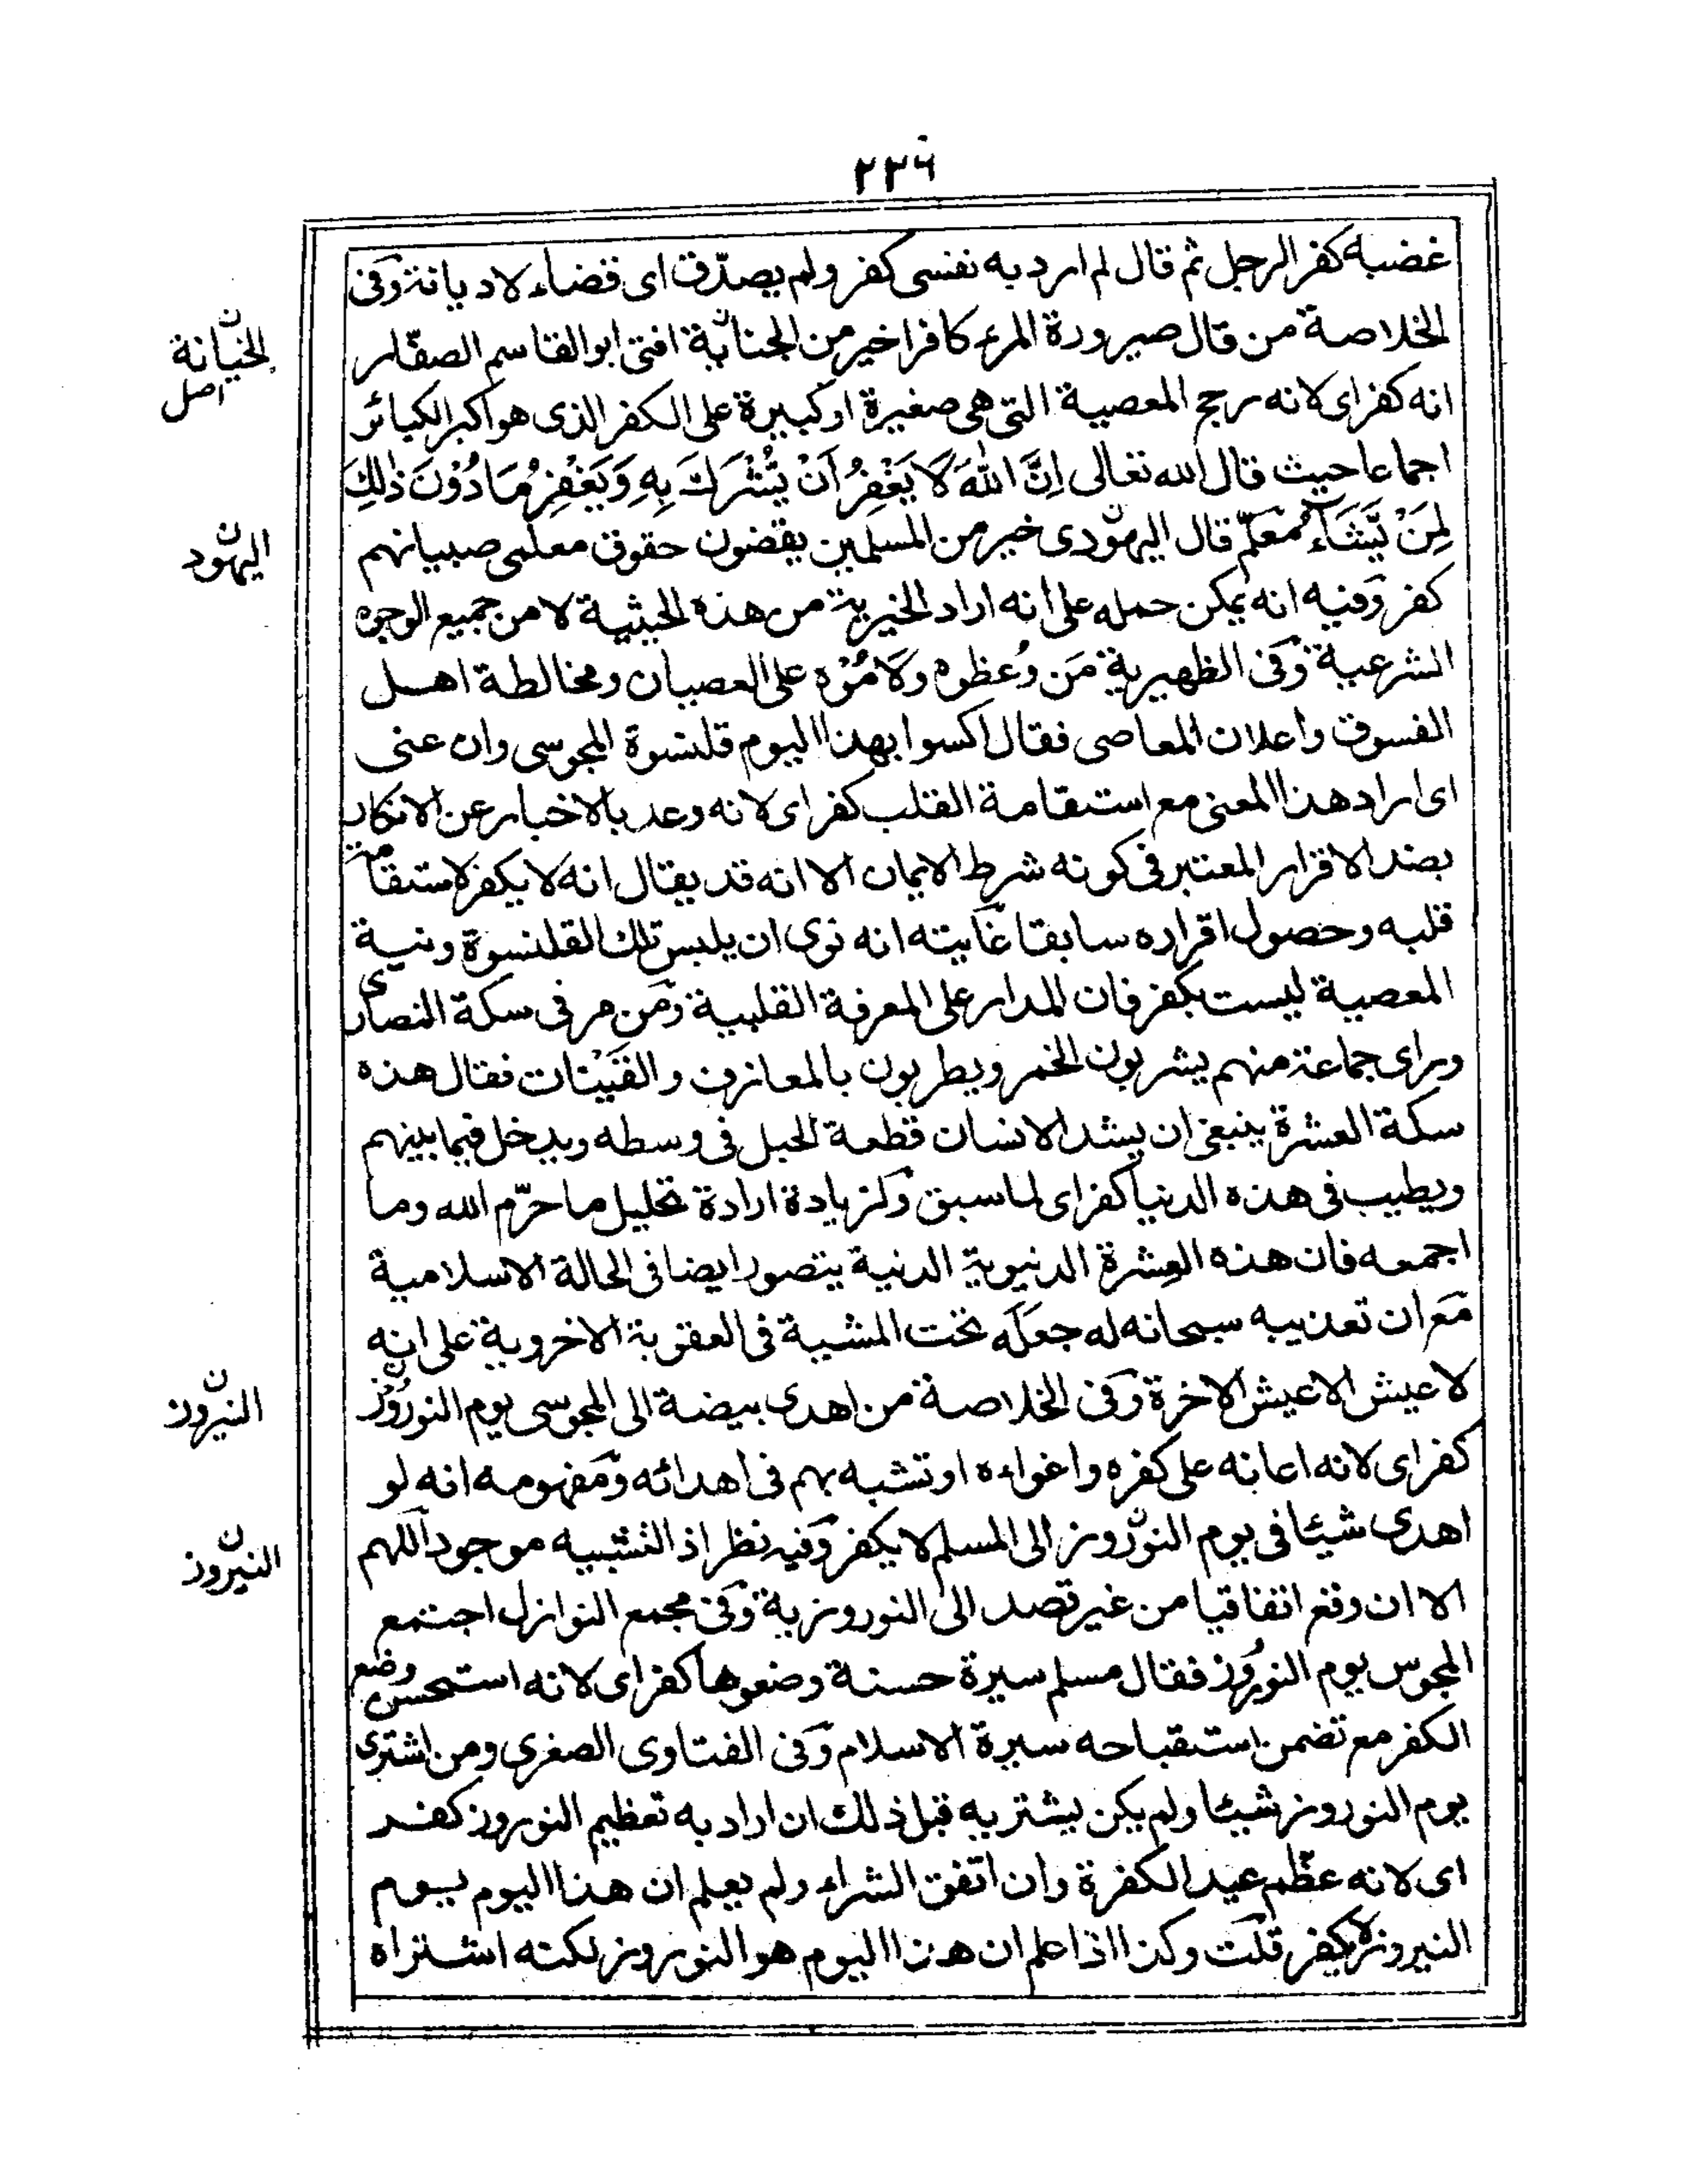 ٢٣٦
غضبه كفر الرجل ثم قال لم ارد به نفسى كفر ولم يصدّق اى قضاء لا ديانة وفى
الخلاصة من قال صيرورة المرء كافرا خير من الجناية افتى ابو القاسم الصفّار
الخيانة
اصل
انه كفر اى لانه رجح المعصية التى هى صغيرة او كبيرة على الكفر الذى هو اكبر الكبائر
اجماعا حيث قال الله تعالى اِنَّ اللّٰهَ لَا يَغْفِرُ اَنْ يُّشْرَكَ بِهٖ وَيَغْفِرُ مَا دُوْنَ ذٰلِكَ
لِمَنْ يَّشَآءُ معلّم قال اليهودى خير من المسلمين يقضون حقوق معلمى صبيانهم
اليهود
كفر وفيه انه يمكن حمله على انه اراد الخيرية من هذه الحيثية لا من جميع الوجوه
الشرعية وفى الظهيرية من وُعظوه ولامُوْه على العصيان ومخالطة اهل
الفسوق واعلان المعاصى فقال اكسوا بهذا اليوم قلنسوة المجوسى وان عنى
اى اراد هذا المعنى مع استقامة القلب كفر اى لانه وعد بالاخبار عن الانكار
بضد الاقرار المعتبر فى كونه شرط الايمان الا انه قد يقال انه لا يكفر لاستقامة
قلبه وحصول اقراره سابقا غايته انه نوى ان يلبس تلك القلنسوة ونية
المعصية ليست بكفر فان المدار على المعرفة القلبية ومن مر فى سكة النصارى
وراى جماعة منهم يشربون الخمر ويطربون بالمعازف والقَيْنات فقال هذه
سكة العشرة ينبغى ان يشد الانسان قطعة الحبل فى وسطه ويدخل فيما بينهم
ويطيب فى هذه الدنيا كفر اى لما سبق ولزيادة ارادة تحليل ما حرّم الله وما
اجمعه فان هذه العِشرة الدنيوية الدنية يتصور ايضا فى الحالة الاسلامية
مع ان تعذيبه سبحانه له جعله تحت المشية فى العقوبة الاخروية على انه
لا عيش الا عيش الاخرة وفى الخلاصة من اهدى بيضة الى المجوسى يوم النوروز
النيرون
كفر اى لانه اعانه على كفره واغواءه او تشبه بهم فى اهدائه ومفهومه انه لو
اهدى شيئا فى يوم النوروز الى المسلم لا يكفر وفيه نظر اذ التشبيه موجود اللهم
النيروز
الا ان وقع اتفاقيا من غير قصد الى النوروزية وفى مجمع النوازل اجتمع
المجوس يوم النوروز فقال مسلم سيرة حسنة وضعوها كفر اى لانه استحسن وضع
الكفر مع تضمن استقباحه سيرة الاسلام وفى الفتاوى الصغرى ومن اشترى
يوم النوروز شيئا ولم يكن يشتريه قبل ذلك ان اراد به تعظيم النوروز كفر
اى لانه عظّم عيد الكفرة وان اتفق الشراء ولم يعلم ان هذا اليوم يوم
النيروز لا يكفر قلت وكذا اذا علم ان هذا اليوم هو النوروز لكنه اشتراه